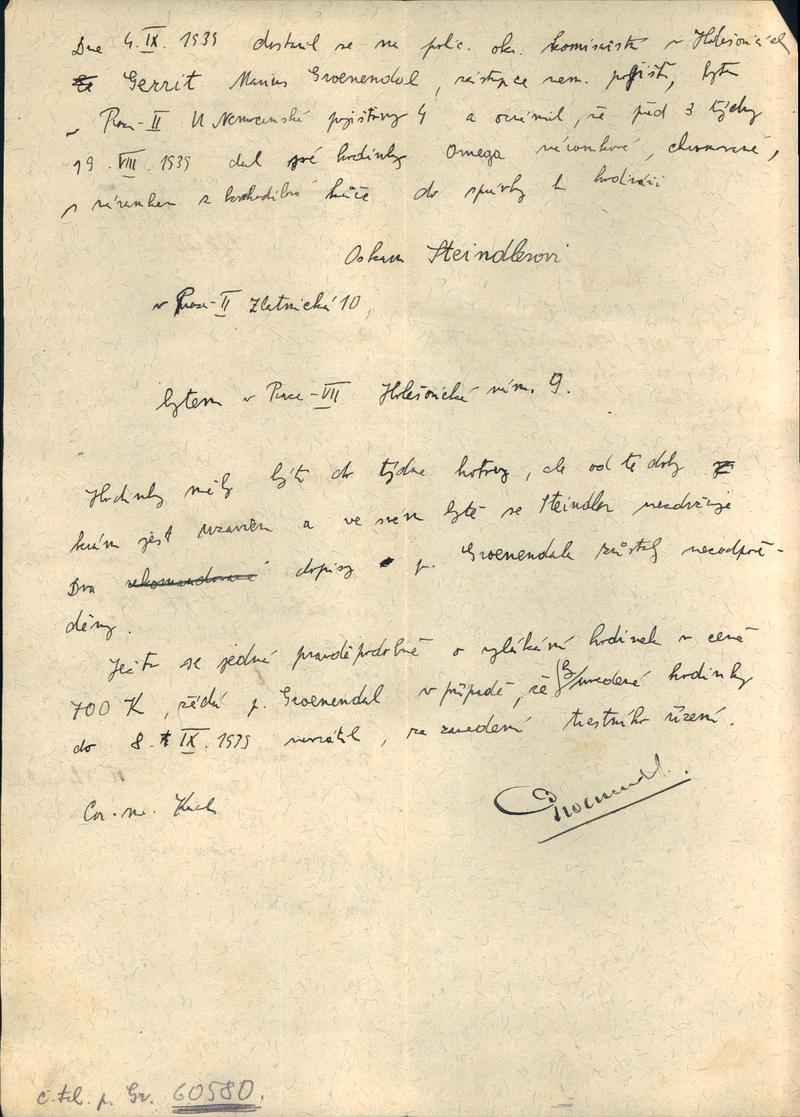 Dne 4. IX. 1939 dostavil se na polic. ok. komisařství v Holešovicích
Gerrit Marius Groenendal, zástupce nem. pojišť, bytem
v Praze-II U Nemocenské pojišťovny 4 a oznámil, že před 3 týdny
19. VIII. 1939 dal své hodinky Omega náramkové, chromované,
s náramkem z krokodilné kůže do správky k hodináři
Oskaru Steindlerovi
v Praze-II Zlatnická 10,
bytem v Praze-VII Holešovické nám. 9.
Hodinky měly býti do týdne hotovy, ale od té doby
krám jest uzavřen a ve svém bytě se Steindler nezdržuje
Dva rekomandované dopisy p. Groenendala zůstaly nezodpově-
děny.
Ježto se jedná pravděpodobně o vylákání hodinek v ceně
700 K, žádá p. Groenendal v případě, že uvedené hodinky
do 8. IX. 1939 nevrátil, za zavedení trestního řízení.
Groenendal.
č. tel. p. Gr. 60580.